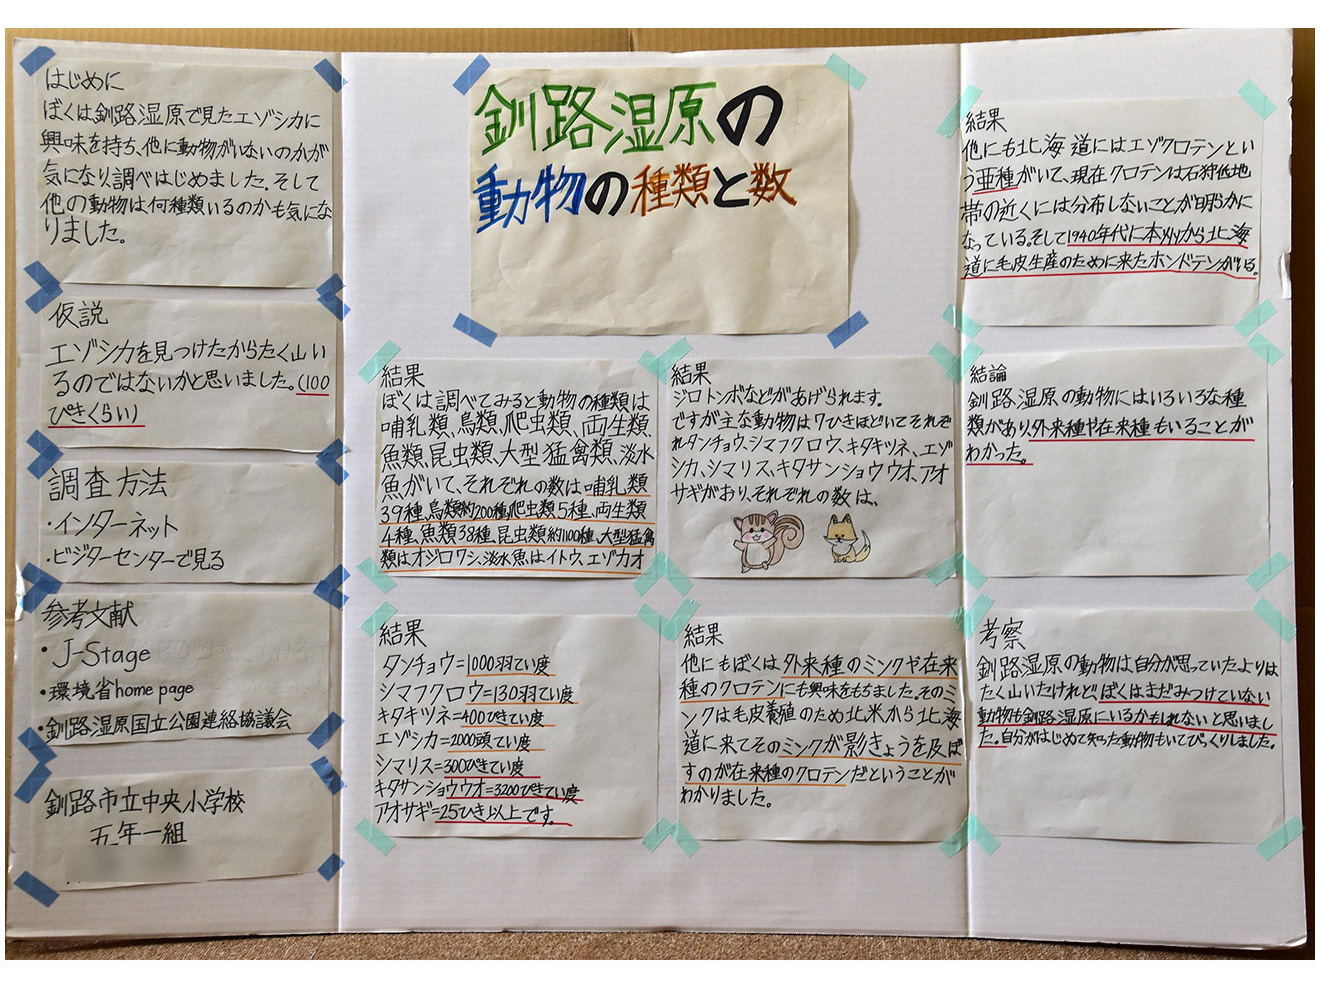 はじめに
ぼくは釧路湿原で見たエゾシカに
興味を持ち、他に動物がいないのかが
気になり、調べはじめました。そして
他の動物は何種類いるのかも気にな
りました。
仮説
エゾシカを見つけたからたく山い
るのではないかと思いました。(100
ぴきくらい)
調査方法
・インターネット
・ビジターセンターで見る
参考文献
・J-Stage
・環境省home page
・釧路湿原国立公園連絡協議会
釧路市立中央小学校
五年一組
釧路湿原の
動物の種類と数
結果
ぼくは調べてみると動物の種類は
哺乳類、鳥類、爬虫類、両生類、
魚類、昆虫類、大型猛禽類、淡水
魚がいて、それぞれの数は哺乳類
39種、鳥類約200種、爬虫類5種、両生類
4種、魚類38種、昆虫類約1100種、大型猛禽
類はオジロワシ、淡水魚はイトウ、エゾカオ
結果
ジロトンボなどがあげられます。
ですが主な動物は7ひきほどいてそれぞ
れタンチョウ、シマフクロウ、キタキツネ、エゾ
シカ、シマリス、キタサンショウウオ、アオ
サギがおり、それぞれの数は、
結果
タンチョウ=1000羽てい度
シマフクロウ=130羽てい度
キタキツネ=400ぴきてい度
エゾシカ=2000頭てい度
シマリス=300ぴきてい度
キタサンショウウオ=3200ぴきてい度
アオサギ=25ひき以上です。
結果
他にもぼくは外来種のミンクや在来
種のクロテンにも興味をもちました。そのミ
ンクは毛皮養殖のため北米から北海
道に来てそのミンクが影きょうを及ぼ
すのが在来種のクロテンだということが
わかりました。
結果
他にも北海道にはエゾクロテンとい
う亜種がいて、現在クロテンは石狩低地
帯の近くには分布しないことが明らかに
なっている。そして1940年代に本州から北海
道に毛皮生産のために来たホンドテンがいる。
結論
釧路湿原の動物にはいろいろな種
類があり、外来種や在来種もいることが
わかった。
考察
釧路湿原の動物は自分が思っていたよりは
たく山いたけれどぼくはまだみつけていない
動物も釧路湿原にいるかもしれないと思いまし
た。自分がはじめて知った動物もいてびっくりしました。